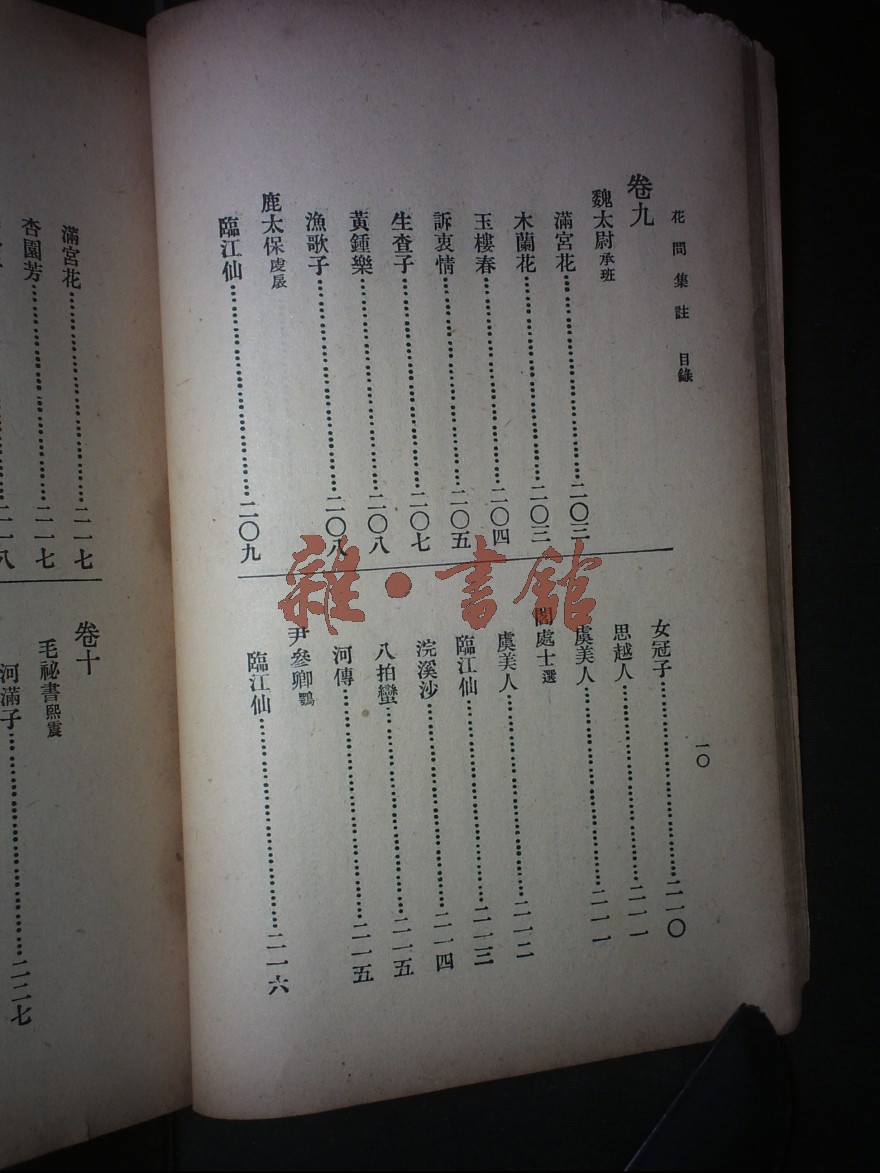 花間集註 目錄
一〇
卷九
魏太尉承班
滿宮花……二〇三
木蘭花……二〇三
玉樓春……二〇四
訴衷情……二〇五
生查子……二〇七
黃鍾樂……二〇八
漁歌子……二〇八
鹿太保虔扆
臨江仙……二〇九
女冠子……二一〇
思越人……二一一
虞美人……二一一
閻處士選
虞美人……二一二
臨江仙……二一三
浣溪沙……二一四
八拍蠻……二一五
河傳……二一五
尹參卿鶚
臨江仙……二一六
滿宮花……二一七
杏園芳……二一七
二一八
卷十
毛祕書熙震
河滿子……二二七
雜·書館